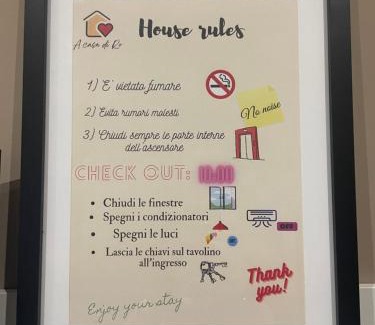 House rules
A casa di Ro
1) E' vietato fumare
2) Evita rumori molesti
No noise
3) Chiudi sempre le porte interne
dell'ascensore
CHECK OUT: 10:00
• Chiudi le finestre
• Spegni i condizionatori
OFF
• Spegni le luci
• Lascia le chiavi sul tavolino
all'ingresso
Thank
you!
Enjoy your stay